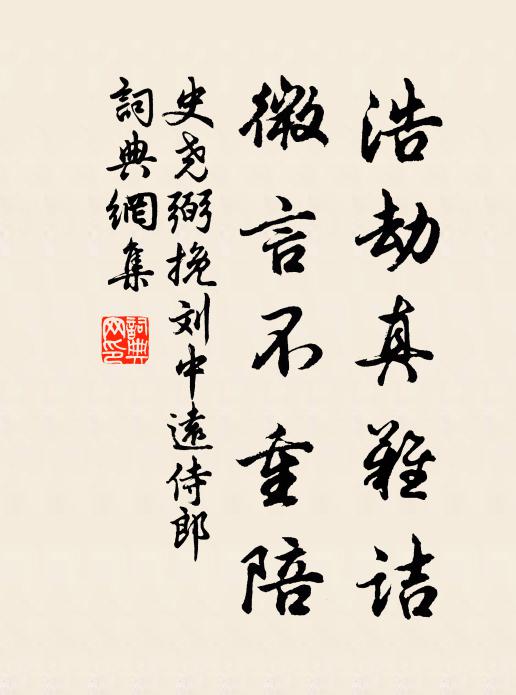 浩劫真難詰
微言不重陪
史尧弼挽刘中遠侍郎
詞典網集
詞典网印